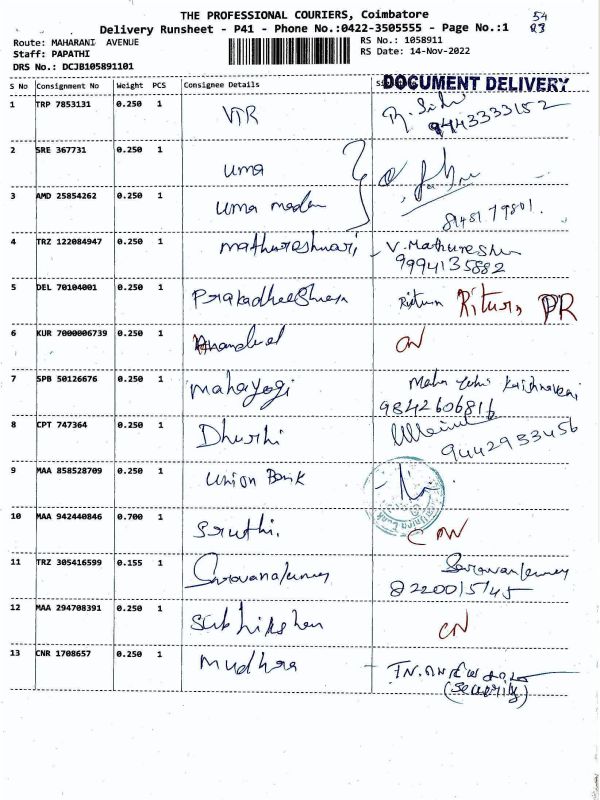 THE PROFESSIONAL COURIERS, Coimbatore
Delivery Runsheet - P41 - Phone No.:0422-3505555 - Page No.:1
54
Route: MAHARANI AVENUE
RS No.: 1058911
Staff: PAPATHI
RS Date: 14-Nov-2022
DRS No.: DCJB105891101
DOCUMENT DELIVERY
S No Consignment No Weight PCS Consignee Details
1 TRP 7853131 0.250 1 VTR
9443333152
2 SRE 367731 0.250 1 uma
3 AMD 25854262 0.250 1 uma madan
8148179801.
4 TRZ 122084947 0.250 1 mathureshwari, - V.Mathureshw
9994135882
5 DEL 70104001 0.250 1 Prakadheeshwaran Return Riturn DR
6 KUR 7000006739 0.250 1 Anandvel CN
7 SPB 50126676 0.250 1 mahayogi
9842606816
8 CPT 747364 0.250 1 Dhurshi
9442933456
9 MAA 858528709 0.250 1 union Bank
10 MAA 942440846 0.700 1 Sruthi.
11 TRZ 305416599 0.155 1 Saravanakumar Saravanakumar
8220015145
12 MAA 294708391 0.250 1 CN
13 CNR 1708657 0.250 1 mudhra
(Security)